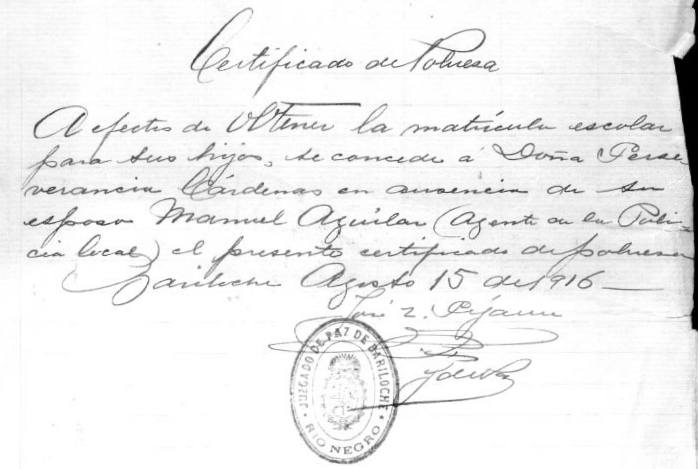 Certificado de Pobresa
A efectos de obtener la matrícula escolar
para sus hijos, se concede á Doña Perse
verancia Cárdenas en ausencia de su
esposo Manuel Aguilar (Agente de la Poli-
cia local) el presente certificado de pobresa
Bariloche Agosto 15 de 1916
José
J de Paz
JUZGADO DE PAZ DE BARILOCHE
RIO NEGRO